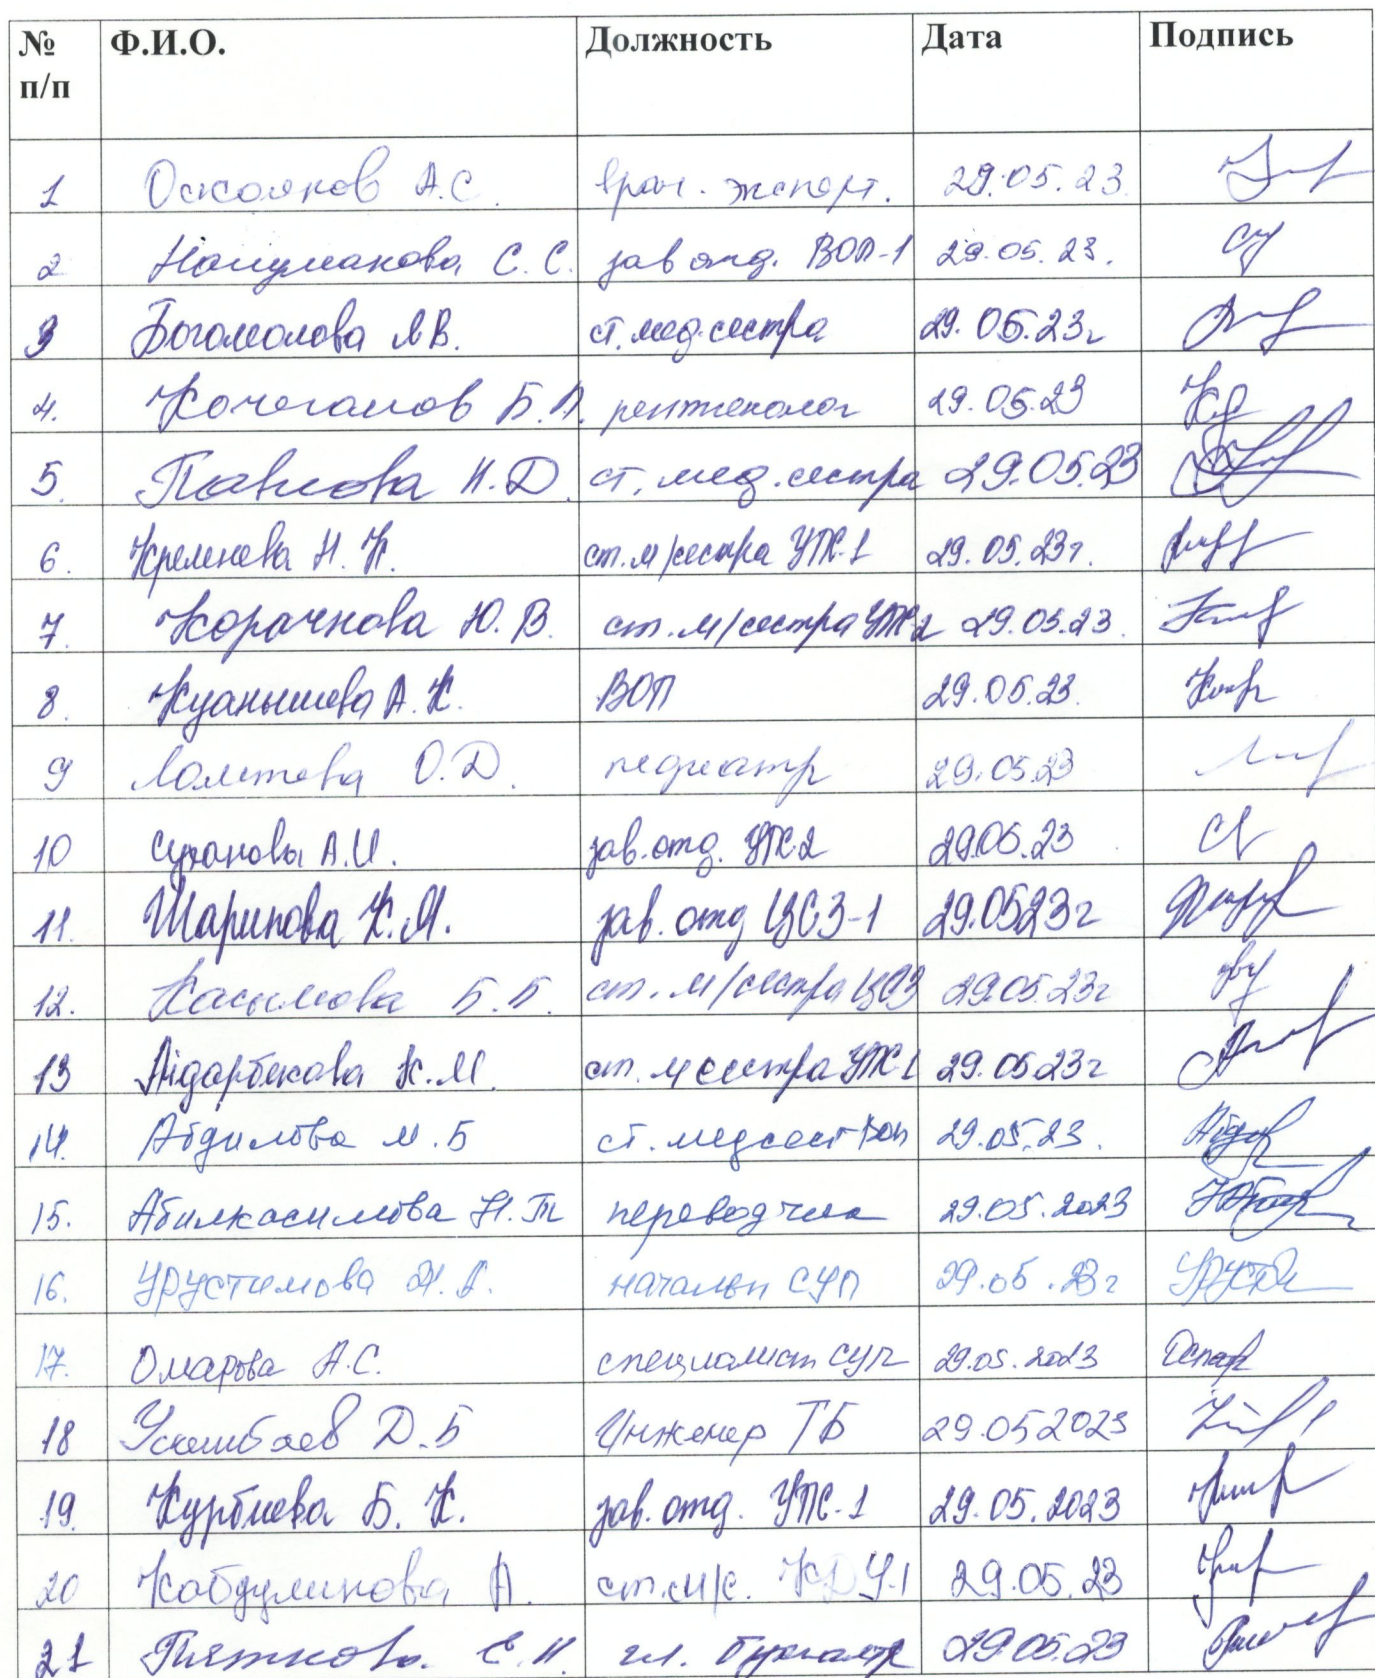 № п/п Ф.И.О. Должность Дата Подпись
1 А.С. врач. эксперт. 29.05.23.
2 С.С. зав отд. ВОП-1 29.05.23.
3 Богомолова А.В. ст. мед. сестра 29.05.23г
4. Б. рентгенолог 29.05.23
5. Павлова Н.Д. ст. мед. сестра 29.05.23
6. Н.К. ст. м/сестра УПС-1 29.05.23г.
7. Корачкова Ю.В. ст. м/сестра УПС-2 29.05.23.
8. Куанышева А.К. ВОП 29.05.23.
9 О.Д. педиатр 29.05.23
10 А.И. зав. отд. УПС2 29.05.23
11. Шарипова К.М. зав. отд ЦСЗ-1 29.0523г
12. Касымова Б.Б. ст. м/сестра ЦСЗ 29.05.23г
13 Айдарбекова К.М. ст. м сестра УПС-1 29.05.23г
14. Абдилова М.Б ст. медсест 29.05.23.
15. Абилкасимова Н.Т переводчик 29.05.2023
16. Урустимова начальн СУП 29.05.23г
17. Омарова А.С. специалист СУП 29.05.2023
18 Д.Б Инженер ТБ 29.052023
19. Курбиева Б.К. зав. отд. УПС-1 29.05.2023
20 А. ст.м/с. КДУ-1 29.05.23
21 Пяткова Е.Н. гл. бухгалтер 29.05.23